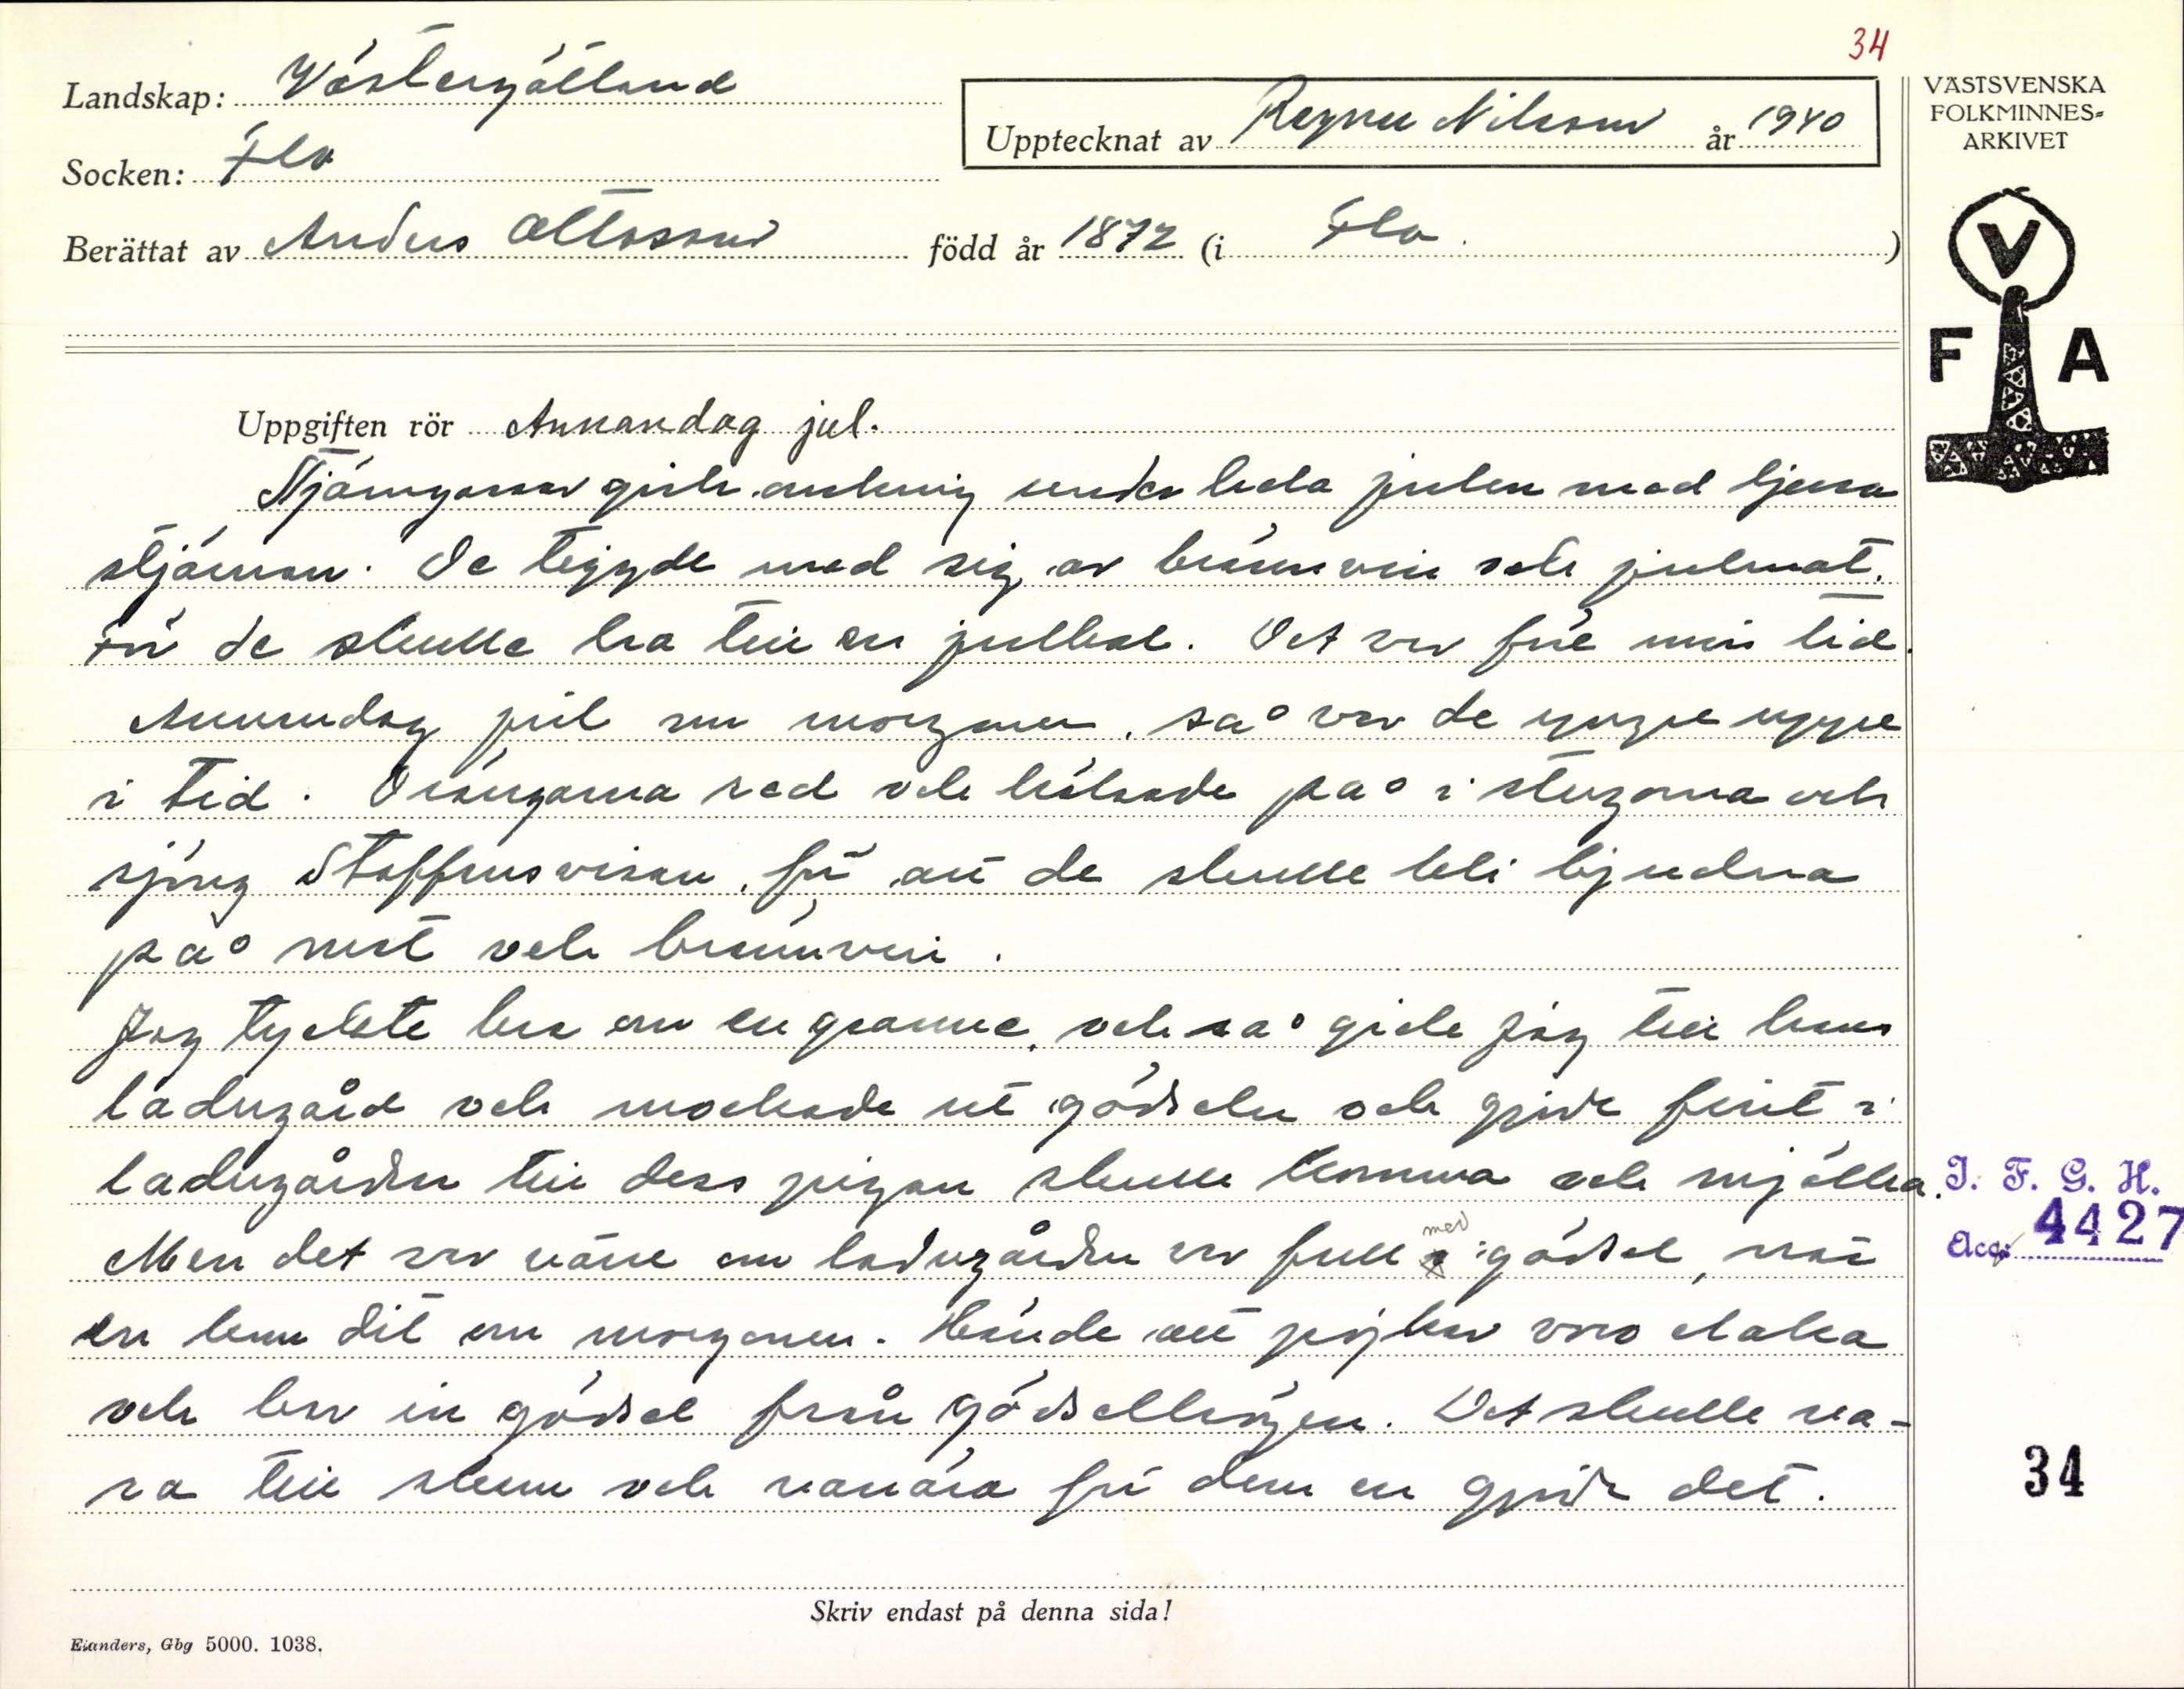 34
Landskap: Västergötland
Upptecknat av Ragnar Nilsson år 1940
VÄSTSVENSKA
FOLKMINNES-
ARKIVET
Socken: Flo
Berättat av Anders Ottosson född år 1872 (i Flo.)
V
F A
Uppgiften rör Annandag jul.
Stjärngossar gick omkring under hela julen med
stjärnan. De tiggde med sig av brännvin och julmat.
För de skulle ha till en julkal. Det var före min tid.
Annandag jul om morgonen, så var de yngre uppe
i tid. Drängarna red och hälsade på i stugorna och
sjöng Staffansvisan, för att de skulle bli bjudna
på mat och brännvin.
Jag tyckte bra om en granne, och så gick jag till hans
ladugård och mockade ut gödseln och gjorde fint i
ladugården till dess pigan skulle komma och mjölka.
Men det var värre om ladugården var full med gödsel, när
en kom dit om morgonen. Hände att pojkar voro elaka
och bar in gödsel från gödselhögen. Det skulle va-
ra till skam och vanära för dem en gjorde det.
I. F. G. H.
Acc. 4427
34
Skriv endast på denna sida!
Elanders, Gbg 5000. 1038.